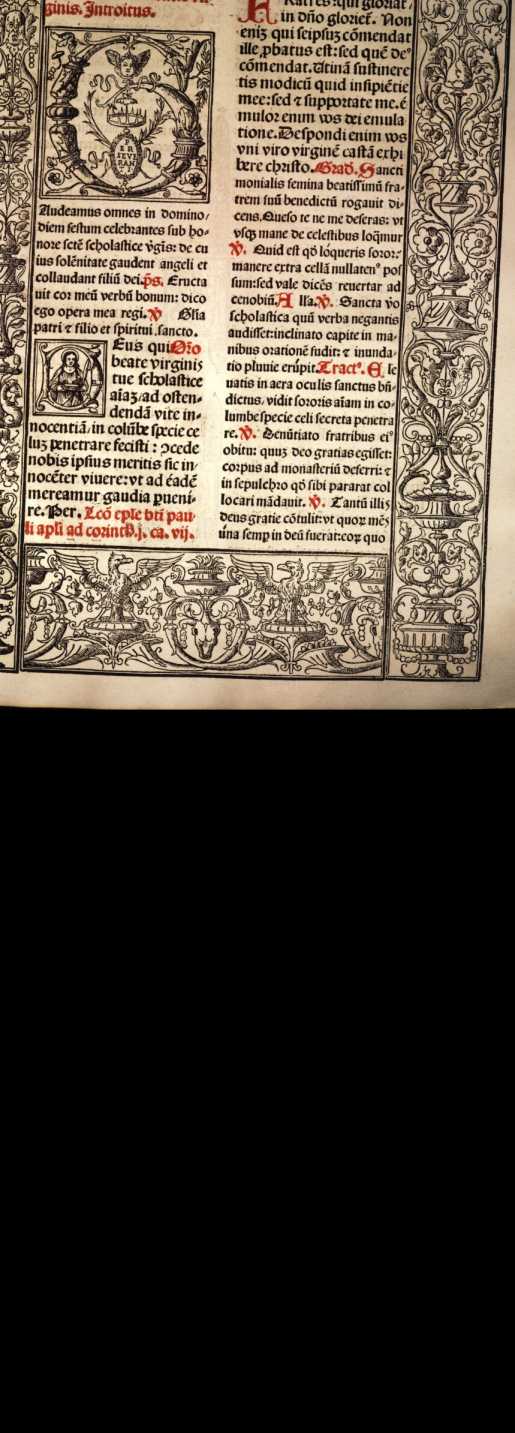 ginis. Introitus.
Audeamus omnes in domino/
diem festum celebrantes sub ho-
nore sctē scholastice v̄gīs: de cu
ius solēnitate gaudent angeli et
collaudant filiū dei. p̄s. Eructa
uit cor meū verbū bonum: dico
ego opera mea regi. ℣ Gl̄ia
patri ⁊ filio et spiritui sancto.
Eus qui Or̄o
beate virginis
tue scholastice
aīaꝫ/ad osten-
dendā vite in-
nocentiā/in colūbe specie ce
luꝫ penetrare fecisti: ꝯcede
nobis ipsius meritis sic in-
nocēter viuere: vt ad eādē
mereamur gaudia ꝑueni-
re. Per. Lcō eplē btī pau-
li apl̄i ad corinth. j. ca. vij.
in dn̄o glorieť. Non
eniꝫ qui seipsuꝫ cōmendat
ille ꝓbatus est: sed quē deꝰ
cōmendat. Utinā sustinere
tis modicū quid insipiētie
mee: sed ⁊ supportate me. é
mulor enim vos dei emula
tione. Despondi enim vos
vni viro virginē castā exhi
bere christo. Grad̄. Sancti
monialis femina beatissimū fra-
trem suū benedictū rogauit di-
cens. Queso te ne me deseras: vt
vsqꝫ mane de celestibus loq̄mur
℣. Quid est qd̄ loqueris soror:
manere extra cellā nullatenꝰ pos
sum: sed vale dicēs reuertar ad
cenobiū. A lla. ℣. Sancta v̄o
scholastica quū verba negantis
audisset: inclinato capite in ma-
nibus orationē fudit: ⁊ inunda-
tio pluuie erūpit. Tractꝰ. E le
uatis in aera oculis sanctus bn̄-
dictus/vidit sororis aīam in co-
lumbe specie celi secreta penetra
re. ℣. Denūtiato fratribus eiꝰ
obitu: quuꝫ deo gratias egisset:
corpus ad monasteriū deferri: ⁊
in sepulchro qd̄ sibi pararat col
locari mādauit. ℣. Tantū illis
deus gratie cōtulit: vt quoꝝ mēs
vna semꝑ in deū fuerat: eoꝝ quo